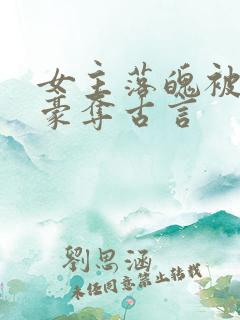 女主落魄被
豪夺古言
劉思涵
未经同意禁止转载